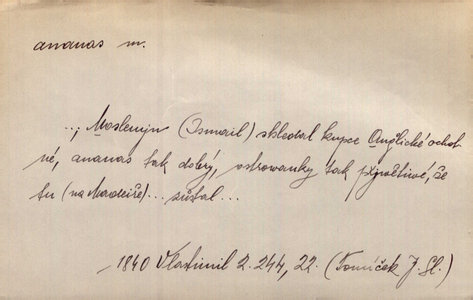 ananas m.
..., Moslemjn (Ismail) shledal kupce Anglické ochot-
né, ananas tak dobrý, ostrowanky tak přjwětiwé, že
tu (na Madeiře)... zůstal...
1840 Vlastimil 2. 244, 22. (Tomíček J. Sl.)